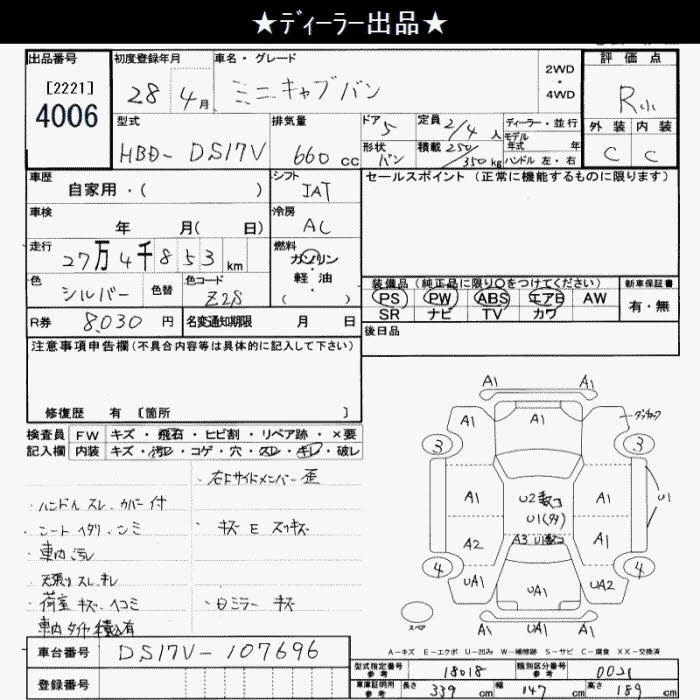 ★ディーラー出品★
出品番号
[2221]
4006
初度登録年月
28年4月
車名・グレード
ミニキャブバン
2WD
・
4WD
評価点
R小
外装 内装
C C
型式
HBD-DS17V
排気量
660cc
ドア
5
形状
バン
定員 2/4人
積載 250/350kg
ディーラー・並行
モデル
年式 年
ハンドル 左・右
車歴
自家用・( )
シフト
IAT
セールスポイント(正常に機能するものに限ります)
車検
年 月( 日)
冷房
AC
走行
27万4千853km
燃料
ガソリン
・
軽油
( )
色
シルバー
色替
色コード
Z2S
装備品(純正品に限り○をつけてください)
PS PW ABS エアB AW
SR ナビ TV カワ
新車保証書
有・無
R券 8,030円
名変通知期限 月 日
後日品
注意事項申告欄(不具合内容等は具体的に記入して下さい)
修復歴 有 〔箇所 〕
検査員 FW キズ・飛石・ヒビ割・リペア跡・×要
記入欄 内装 キズ・汚レ・コゲ・穴・スレ・キレ・破レ
・右Fサイドメンバー歪
・ハンドルスレ、カバー付
・シートヘタリ、シミ
・キズ E スリキズ
・車内汚レ
・天張りスレ、キレ
・荷室キズ、ヘコミ
・Dミラーキズ
・車内タイヤ積込有
A1 A1
A1 A1 A1
3 3
A1 U2数コ A1 U1
U1(多)
A2 A3 U1数コ A1
4 4
UA1 UA1 UA2
A1 A1
スペア
A-キズ E-エクボ U-凹み W-補修跡 S-サビ C-腐食 XX-交換済
車台番号 DS17V-107696
登録番号
型式指定番号
参考
18018
類別区分番号
参考
0021
車庫証明用
参考
長さ 339cm 幅 147cm 高さ 189cm